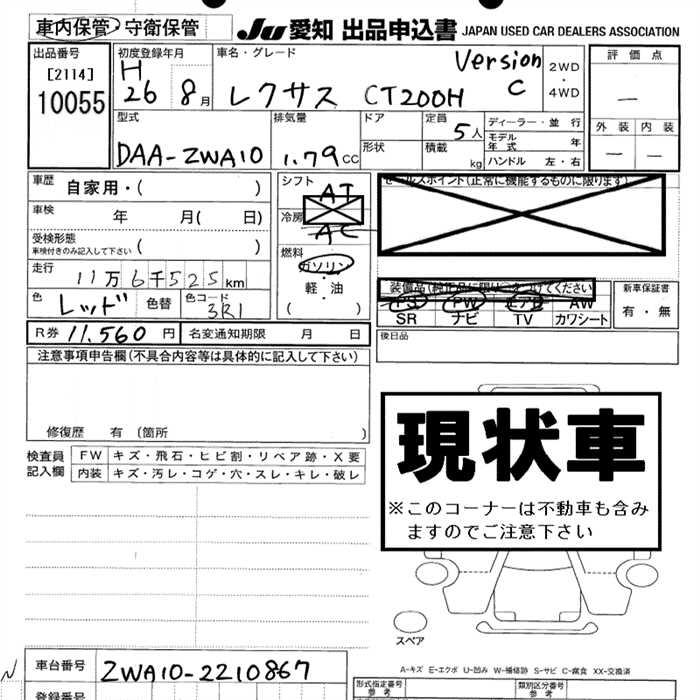 車内保管・守衛保管 JU 愛知 出品申込書 JAPAN USED CAR DEALERS ASSOCIATION
出品番号 [2114] 10055
初度登録年月 H 26 8月
車名・グレード レクサス CT200H Version C
2WD・4WD
評価点 —
外装 内装
— —
型式 DAA-ZWA10
排気量 1.79 cc
ドア 形状
定員 5人
積載 kg
ディーラー・並行
モデル年式 年
ハンドル 左・右
車歴 自家用・( )
車検 年 月( 日)
受検形態 車検付きのみ記入して下さい ( )
走行 11万6千525km
色 レッド 色替 色コード 3R1
R券 11,560 円 名変通知期限 月 日
シフト AT
冷房 AC
燃料 ガソリン・軽・油 ( )
セールスポイント(正常に機能するものに限ります)
装備品(純正品に限り
つけてください)
PS PW エアB AW
SR ナビ TV カワシート
新車保証書 有・無
後日品
注意事項申告欄(不具合内容等は具体的に記入して下さい)
修復歴 有 (箇所 )
検査員記入欄
FW キズ・飛石・ヒビ割・リペア跡・X要
内装 キズ・汚レ・コゲ・穴・スレ・キレ・破レ
現状車
※このコーナーは不動車も含み
ますのでご注意下さい
スペア
A-キズ E-エクボ U-凹み W-補修跡 S-サビ C-腐食 XX-交換済
N
車台番号 ZWA10-2210867
登録番号
形式指定番号 参考
類別区分番号 参考